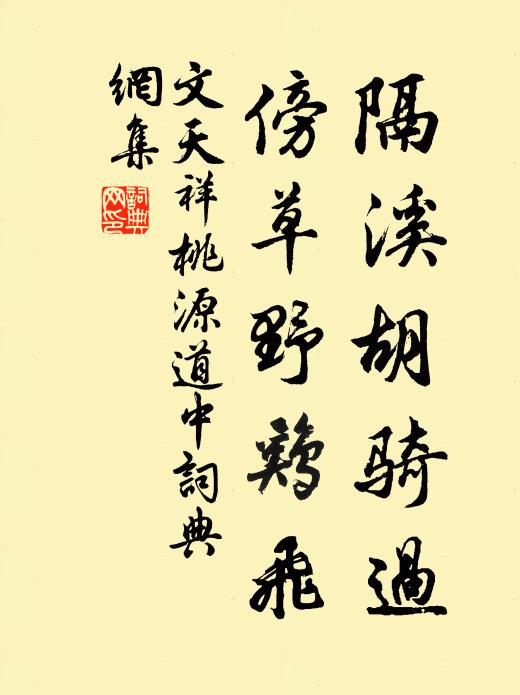 隔溪胡騎過
傍草野鷄飛
文天祥桃源道中詞典
網集
詞典網印